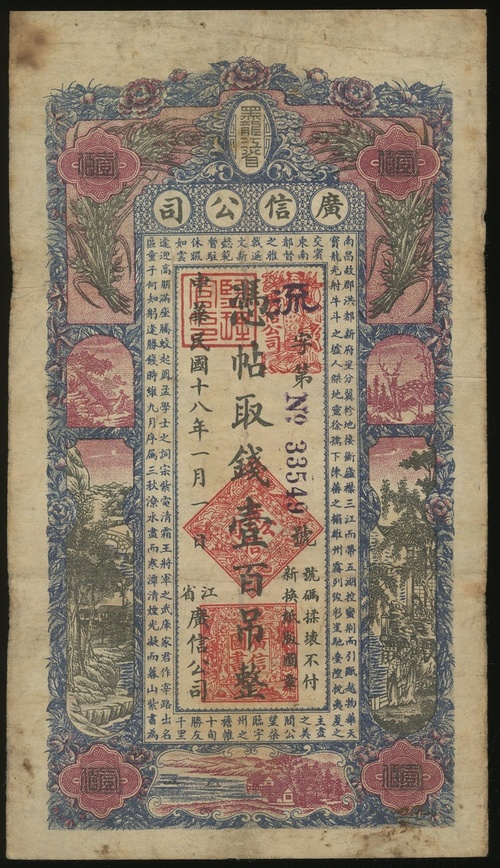 黑龍江省
壹佰
壹佰
廣信公司
南昌故郡洪都新府星分翼軫地接衡廬襟三江而帶五湖控蠻荊而引甌越物華天
寶龍光射牛斗之墟人傑地靈徐孺下陳蕃之榻雄州霧列俊彩星馳臺隍枕夷夏之
交賓主盡
東南之美
都督閻公
之雅望棨
戟遙臨宇
文新州之
懿範襜帷
暫駐十旬
休暇勝友
如雲千里
逢迎高朋滿座騰蛟起鳳孟學士之詞宗紫電清霜王將軍之武庫家君作宰路出名
區童子何知躬逢勝餞時維九月序屬三秋潦水盡而寒潭清煙光凝而暮山紫
流字第 No 33549 號
號碼揉壞不付
新換紙版圖章
憑帖取錢壹百吊整
中華民國十八年一月一日
江省廣信公司
壹佰
壹佰